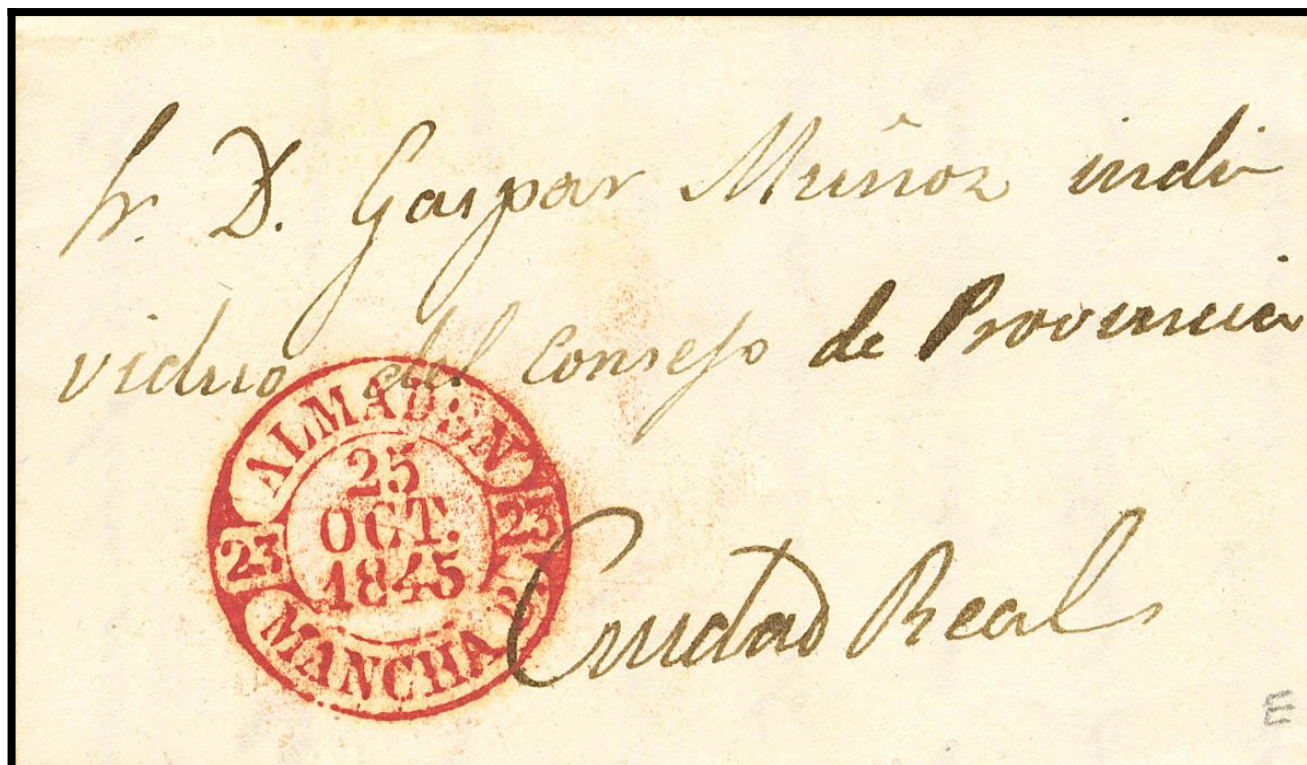 Sr. D. Gaspar Muñoz indi
viduo del Consejo de Provincia
ALMADEN
25
OCT.
1845
23
23
MANCHA
Ciudad Real
E